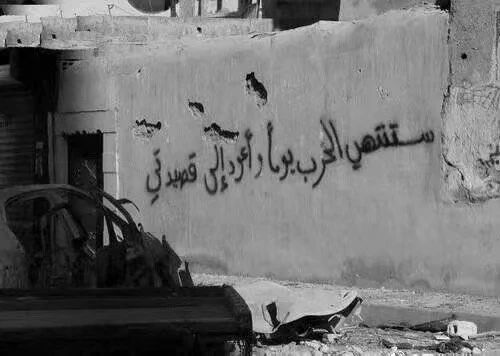 ستنتهي الحرب يوماً وأعود إلى قصيدتي